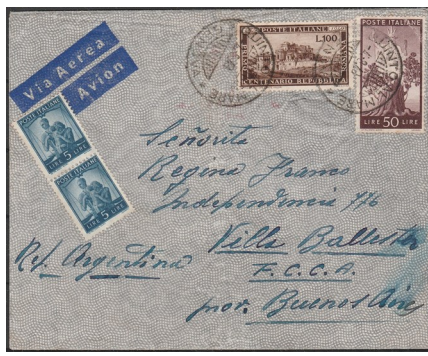 Via Aerea
Avion
POSTE ITALIANE
L.100
CENTENARIO REPUBBLICA ROMANA
POSTE ITALIANE
LIRE 50 LIRE
POSTE ITALIANE
LIRE 5 LIRE
POSTE ITALIANE
LIRE 5 LIRE
Señorita
Regina Franco
Independencia 776
Villa Ballester
Rep. Argentina
F.C.C.A.
por. Buenos Aires